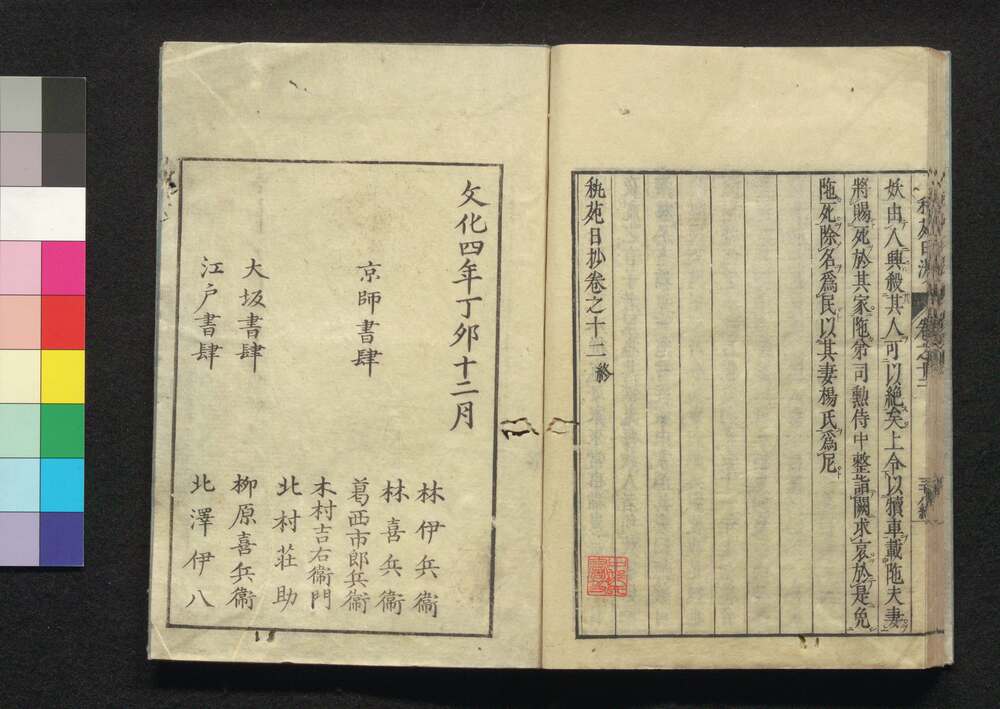 妖由人興殺其人可以絶矣上令以犢車載陁夫妻
將賜死於其家陁弟司勲侍中整詣闕求哀於是免
陁死除名爲民以其妻楊氏爲尼
秇苑日抄卷之十二終
文化四年丁夘十二月
京師書肆
林伊兵衞
林喜兵衞
葛西市郎兵衞
木村吉右衞門
北村荘助
大坂書肆
柳原喜兵衞
江戸書肆
北澤伊八